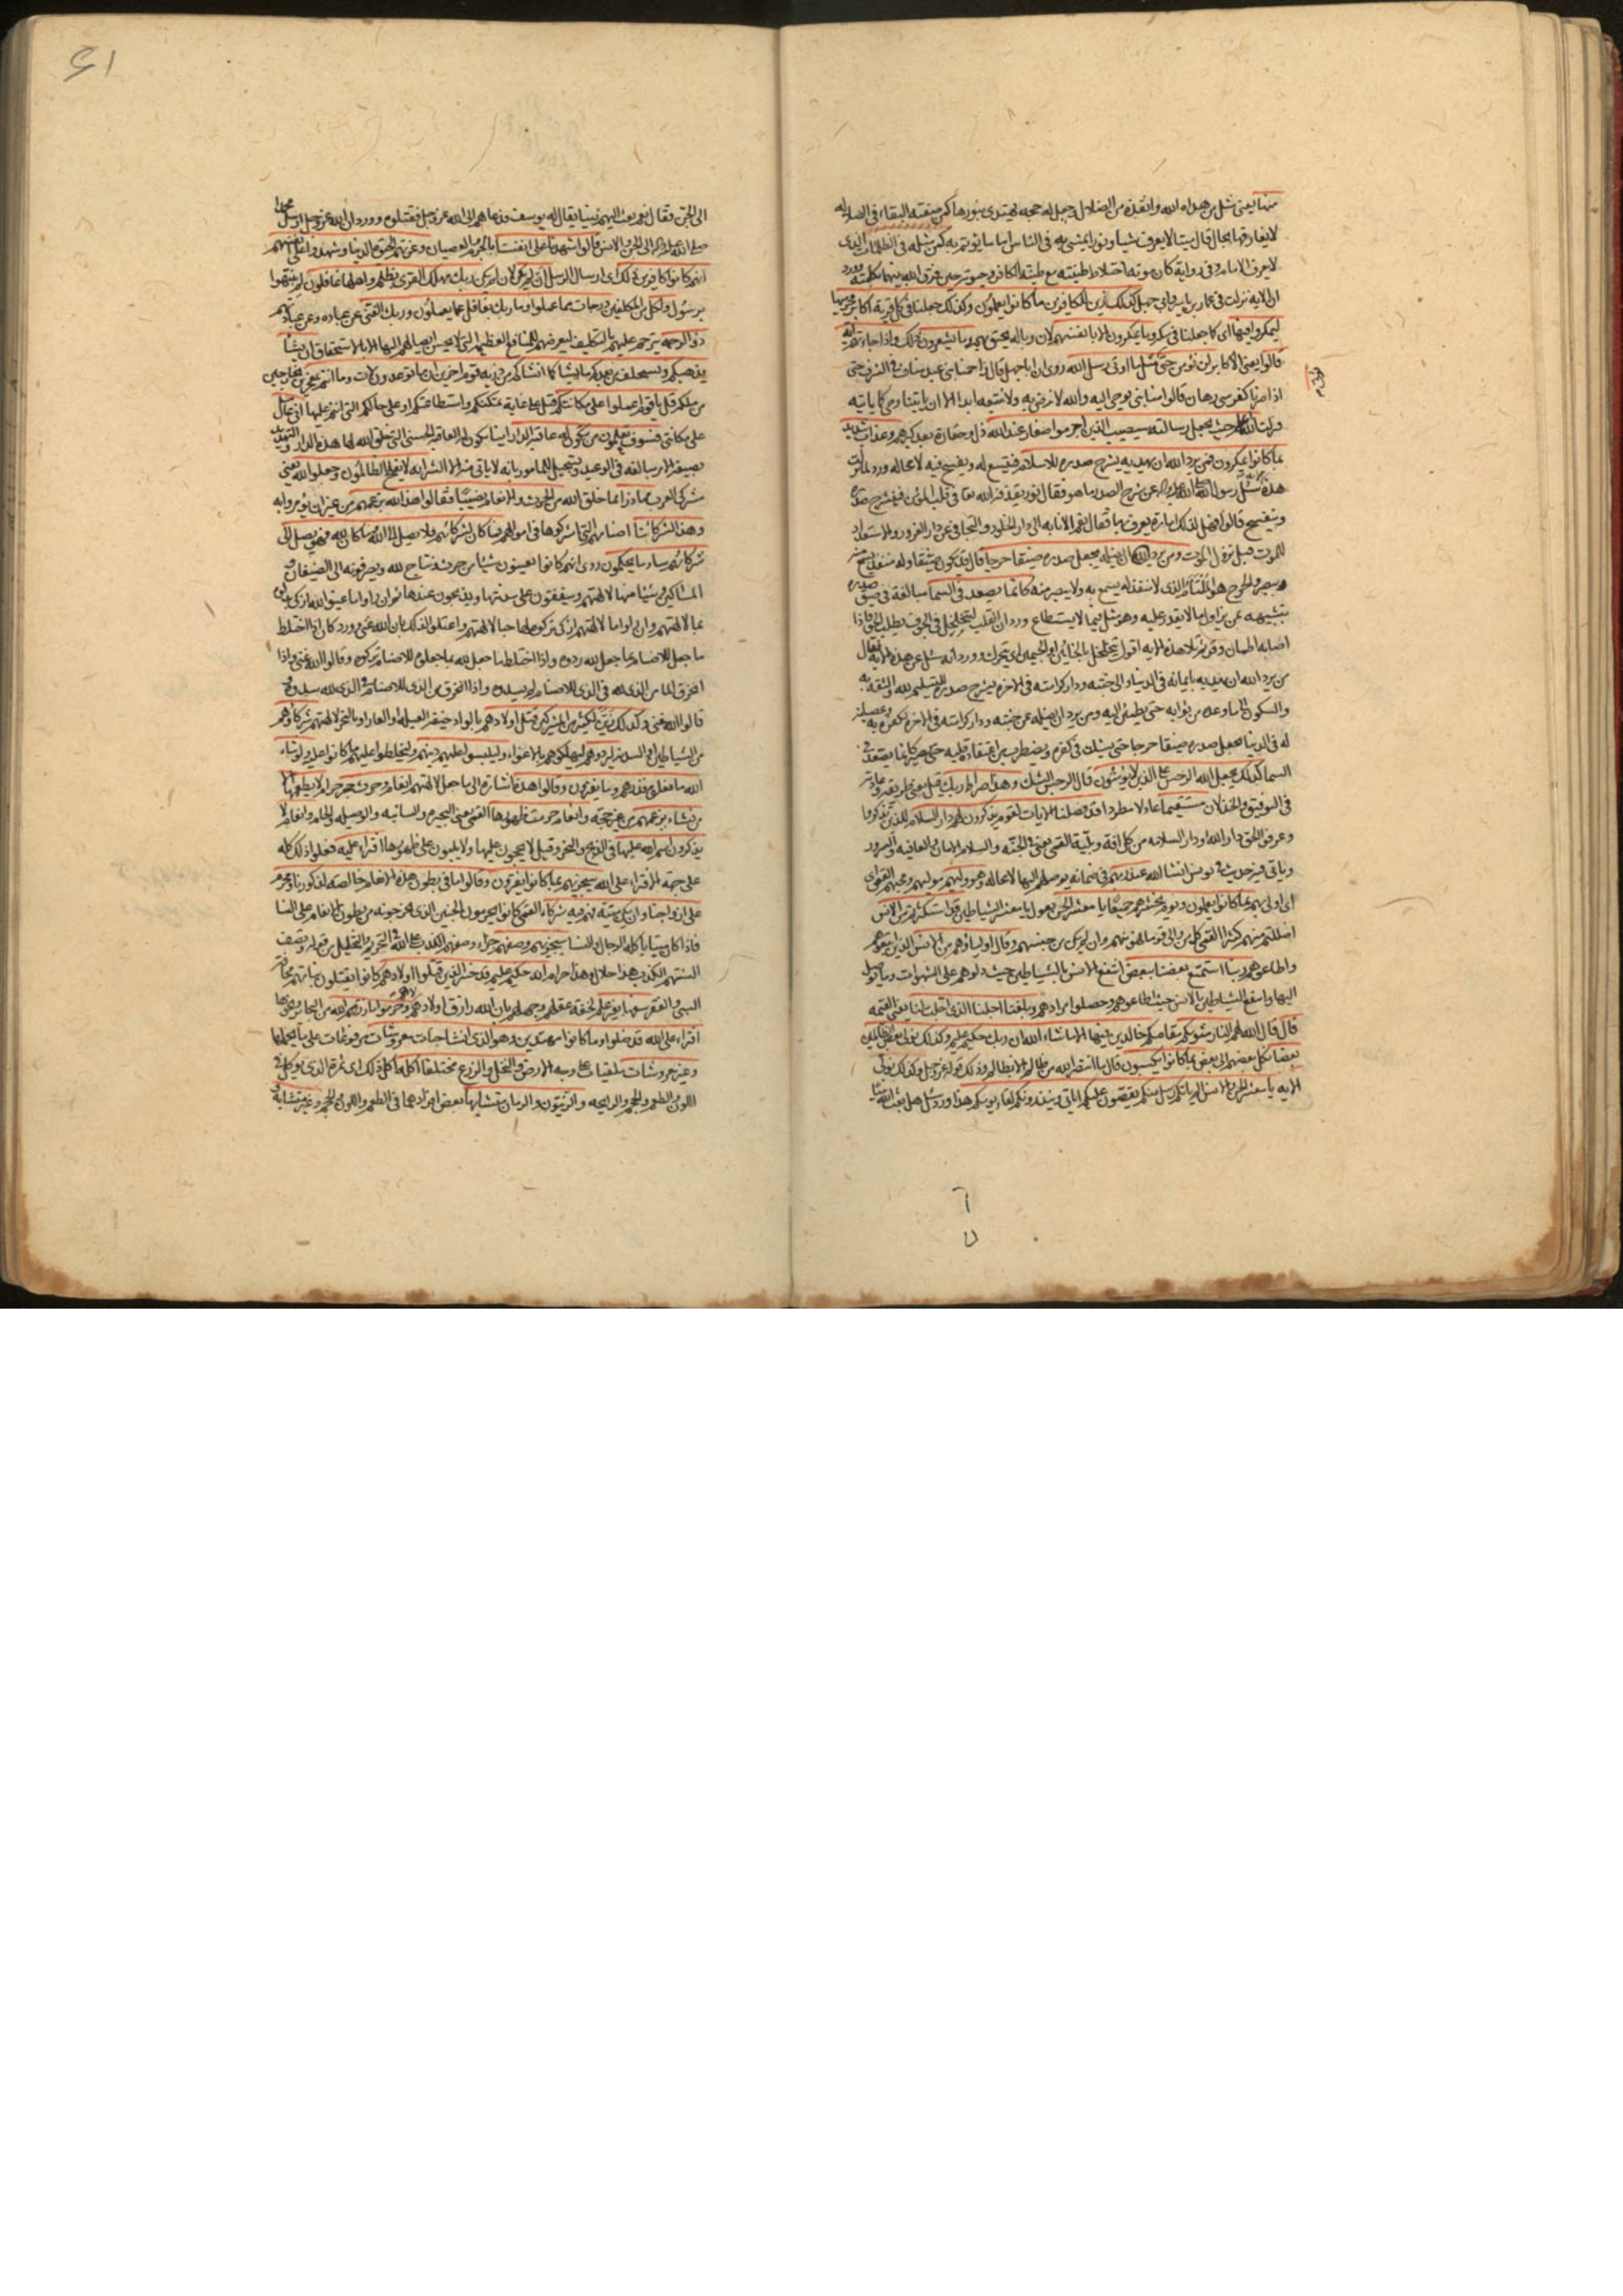 منها يعني مثل من هداه الله وانقذه من الضلال وجعل له حجه يهتدى بنورها كمن صفته البقاء في الضلاله
لا يفارقها بحال قال ميتا لا يعرف شيئا ونورا يمشي به في الناس اماما يؤتم به كمن مثله في الظلمات الذى
لا يعرف الامام وفي رواية كان موته اختلاط طينته مع طينة الكافر وحيوته حين فرق الله بينهما بكلمته وورد
ان الاية نزلت في عمار بن ياسر وابي جهل كذلك زين للكافرين ما كانوا يعملون وكذلك جعلنا في كل قرية اكابر مجرميها
ليمكروا فيها اى كما جعلنا في مكة وما يمكرون الا بانفسهم لان وباله يحيق بهم وما يشعرون ذلك واذا جاءتهم اية
قالوا يعني الاكابر لن نؤمن حتى نؤتى مثل ما اوتى رسل الله روى ان ابا جهل قال زاحمنا بني عبد مناف في الشرف حتى
اذا صرنا كفرسي رهان قالوا منا نبي يوحى اليه والله لا نرضى به ولا نتبعه ابدا الا ان ياتينا وحي كما ياتيه
فنزلت الله اعلم حيث يجعل رسالته سيصيب الذين اجرموا صغار عند الله ذل وحقارة بعد كبرهم وعذاب شديد
بما كانوا يمكرون فمن يرد الله ان يهديه يشرح صدره للاسلام فيتسع له ويفسح فيه لا محاله ورد لما نزلت
هذه الاية سئل رسول الله صلى الله عليه واله عن شرح الصدر ما هو فقال نور يقذفه الله تعا في قلب المؤمن فيشرح صدره
وينفسح قالوا فهل لذلك امارة يعرف بها فقال نعم الانابه الى دار الخلود والتجافي عن دار الغرور والاستعداد
للموت قبل نزول الموت ومن يرد ان يضله يجعل صدره ضيقا حرجا قال قد يكون ضيقا وله منفذ يسمع منه
ويبصر والحرج هو الملتام الذى لا منفذ له يسمع به ولا يبصر منه كانما يصعد في السما مبالغة في ضيق صدره
بتشبيهه بمن يزاول ما لا يقدر عليه وهو مثل فيما لا يستطاع وورد ان القلب ليتجلجل في الجوف يطلب الحق فاذا
اصابه اطمان وقر ثم تلا هذه الايه اقول يتجلجل بالخائين او الجيمين اى يتحرك وورد انه سئل عن هذه الاية فقال
من يرد الله ان يهديه بايمانه في الدنيا الى جنته ودار كرامته في الاخرة يشرح صدره للتسليم لله والثقة به
والسكون الى ما وعده من ثوابه حتى يطمئن اليه ومن يرد ان يضله عن جنته ودار كرامته في الاخرة لكفره به وعصيانه
له في الدنيا يجعل صدره ضيقا حرجا حتى يشك في كفره ويضطرب من اعتقاده قلبه حتى يصير كانما يصعد في
السما كذلك يجعل الله الرجس على الذين لا يؤمنون قال الرجس الشك وهذا صراط ربك قيل يعني طريقه وعادته
في التوفيق والخذلان مستقيما عادلا مطردا قد فصلنا الايات لقوم يذكرون لهم دار السلام للذين تذكروا
وعرفوا الحق دار الله او دار السلامه من كل افة وبلية القمي يعني في الجنة والسلام الامان والعافيه والسرور
وياتي فيه حديث في يونس انشا الله عند ربهم في ضمانه يوصلهم اليها لا محاله وهو وليهم مولاهم ومحبهم القمي اى
اى اولى بهم بما كانوا يعملون ويوم يحشرهم جميعا يا معشر الجن يعول يا معشر الشياطين قد استكثرتم من الانس
اضللتم منهم كثيرا القمي كل من والى قوما فهو منهم وان لم يكن من جنسهم وقال اولياؤهم من الانس الذين اتبعوهم
واطاعوهم ربنا استمتع بعضنا ببعض انتفع الانس بالشياطين حيث دلوهم على الشهوات وما يوصل
اليها وانتفع الشياطين بالانس حيث اطاعوهم وحصلوا مرادهم وبلغنا اجلنا الذى اجلت لنا يعني القيمه
قال قال الله لهم النار مثويكم مقامكم خالدين فيها الا ما شاء الله ان ربك حكيم عليم وكذلك نولى بعض الظالمين
بعضا نكل بعضهم الى بعض بما كانوا يكسبون قال ما انتصر الله من ظالم الا بظالم وذلك قوله عز وجل وكذلك نولى
الايه يا معشر الجن والانس الم ياتكم رسل منكم يقصون عليكم اياتي وينذرونكم لقاء يومكم هذا ورد سئل هل بعث الله نبيا
الى الجن فقال نعم بعث اليهم نبيا يقال له يوسف فدعاهم الى الله عز وجل فقتلوه وورد ان الله عز وجل ارسل محمدا
صلى الله عليه واله الى الجن والانس قالوا شهدنا على انفسنا بالجرم والعصيان وغرتهم الحيوة الدنيا وشهدوا على انفسهم
انهم كانوا كافرين ذلك اى ارسال الرسل ان لم يكن لان لم يكن ربك مهلك القرى بظلم واهلها غافلون لم ينبهوا
برسول ولكل من المكلفين درجات مما عملوا وما ربك بغافل عما يعملون وربك الغني عن عباده وعن عبادتهم
ذو الرحمه يترحم عليهم بالتكليف ليعرضهم للمنافع العظيمة التي لا يحسن ايصالهم اليها الا بالاستحقاق ان يشا
يذهبكم ويستخلف من بعدكم ما يشا كما انشاكم من ذرية قوم اخرين ان ما توعدون لات وما انتم بمعجزين بخارجين
من ملكه قل يا قوم اعملوا على مكانتكم قيل على غاية تمكنكم واستطاعتكم او على حالكم التي انتم عليها اني عامل
على مكانتي فسوف تعلمون من تكون له عاقبة الدار اينا يكون له العاقبة الحسنى التي خلق الله لها هذه الدار والتهديد
بصيغة الامر مبالغه في الوعيد وتسجيل للمامور بانه لا ياتي منه الا الشر انه لا يفلح الظالمون وجعلوا لله يعني
مشركي العرب مما ذرا مما خلق الله من الحرث والانعام نصيبا فقالوا هذا لله بزعمهم من غير ان يؤمروا به
وهذا لشركائنا اصنامهم التي اشركوها في اموالهم فما كان لشركائهم فلا يصل الى الله وما كان لله فهو يصل الى
شركائهم ساء ما يحكمون روى انهم كانوا يعينون شيئا من حرث ونتاج لله ويصرفونه الى الضيفان و
المساكين وشيئا منهما لالهتهم وينفقون على سدنتها ويذبحون عندها ثم ان راوا ما عينوا لله ازكى بدلوه
بما لالهتهم وان راوا ما لالهتهم ازكى تركوه لها حبا لالهتهم واعتلوا لذلك بان الله غني وورد كان اذا اختلط
ما جعل للاصنام بما جعل لله ردوه واذا اختلط ما جعل لله بما جعلوه للاصنام تركوه وقالوا الله غني واذا
انخرق الماء من الذى لله في الذى للاصنام لم يسدوه واذا انخرق من الذى للاصنام في الذى لله سدوه و
قالوا الله غني وكذلك زين لكثير من المشركين قتل اولادهم بالواد خيفة العيلة او العار او بالنحر لالهتهم شركاؤهم
من الشياطين او السدنه ليردوهم ليهلكوهم بالاغواء وليلبسوا عليهم دينهم وليخلطوا عليهم ما كانوا عليه ولو شاء
الله ما فعلوه فذرهم وما يفترون وقالوا هذه اشارة الى ما جعل لالهتهم انعام وحرث حجر حرام لا يطعمها الا
من نشاء بزعمهم من غير حجة وانعام حرمت ظهورها القمي يعني البحيره والسائبه والوصيله والحام وانعام لا
يذكرون اسم الله عليها في الذبح والنحر وقيل لا يحجون عليها ولا يلبون على ظهورها افتراء عليه فعلوا ذلك كله
على جهة الافتراء على الله سيجزيهم بما كانوا يفترون وقالوا ما في بطون هذه الانعام خالصة لذكورنا ومحرم
على ازواجنا وان يكن ميتة فهم فيه شركاء القمي كانوا يحرمون الجنين الذى يخرجونه من بطون الانعام على النسا
فاذا كان ميتا ياكله الرجال والنسا سيجزيهم وصفهم جزاء وصفهم الكذب على الله في التحريم والتحليل من قوله وتصف
السنتهم الكذب هذا حلال وهذا حرام انه حكيم عليم قد خسر الذين قتلوا اولادهم كانوا يقتلون بناتهم مخافة
السبي والفقر سفها بغير علم لخفة عقلهم وجهلهم بان الله رازق اولادهم لاهم وحرموا ما رزقهم الله من البحائر ونحوها
افتراء على الله قد ضلوا وما كانوا مهتدين وهو الذى انشا جنات معروشات مرفوعات على ما يحملها
وغير معروشات ملقيات على وجه الارض والنخل والزرع مختلفا اكله اكل ذلك اى ثمره الذى يوكل في
اللون والطعم والحجم والرايحه والزيتون والرمان متشابها بعض افرادهما في الطعم واللون والحجم وغير متشابه و